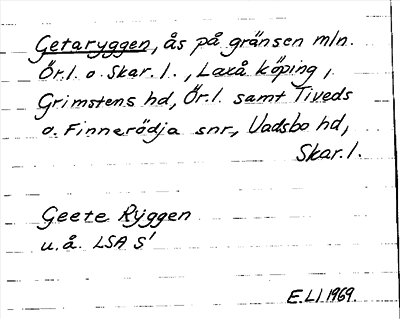 Getaryggen, ås på gränsen mln.
Ör.l. o. Skar. l., Laxå köping,
Grimstens hd, Ör.l. samt Tiveds
o. Finnerödja snr, Vadsbo hd,
Skar. l.
Geete Ryggen
u.å. LSA S1
E.LJ 1969.